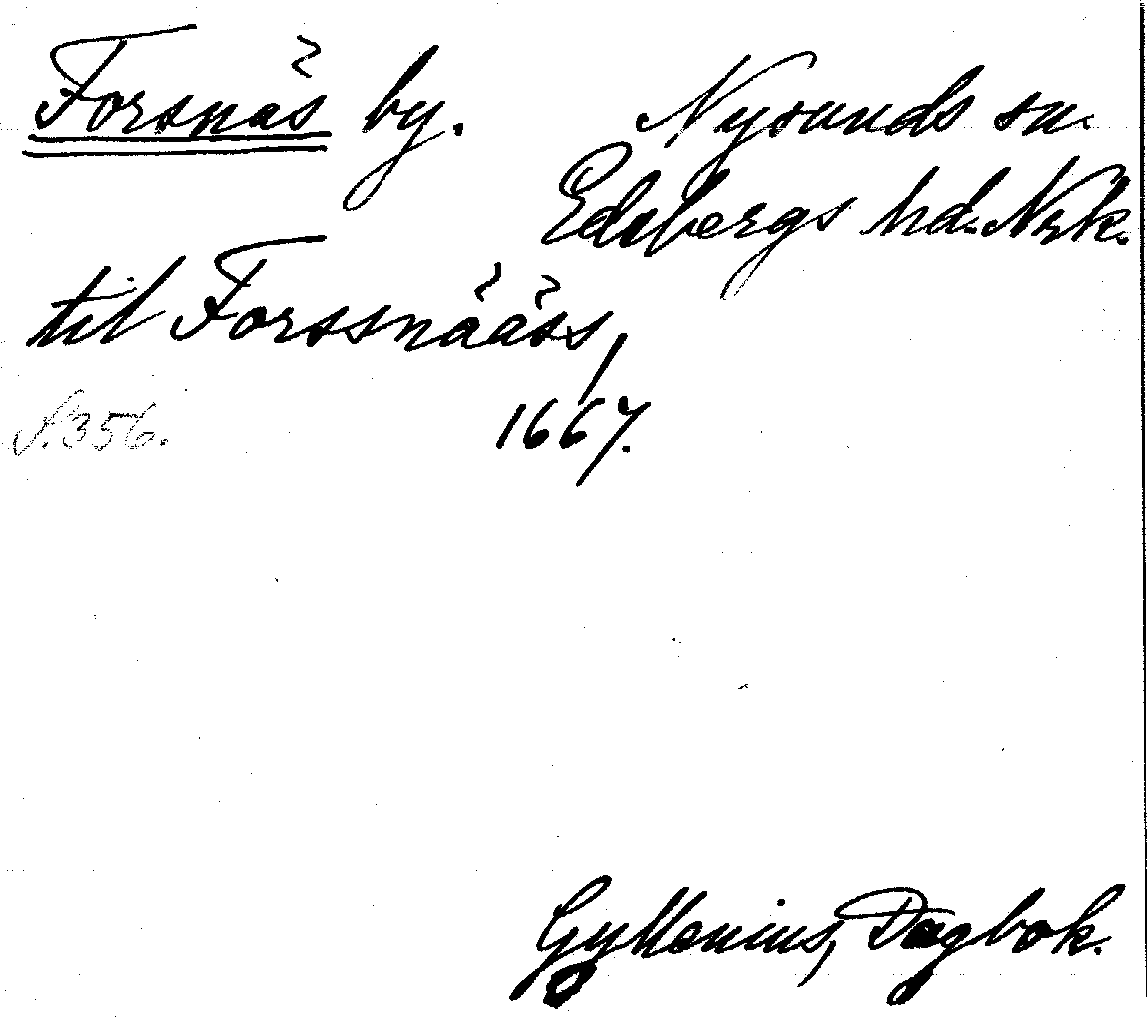 Forsnäs by. Nysunds sn.
Edsbergs hd. Nrk.
til Forssnääss,
S. 356. 1667.
Gyllenius, Dagbok.